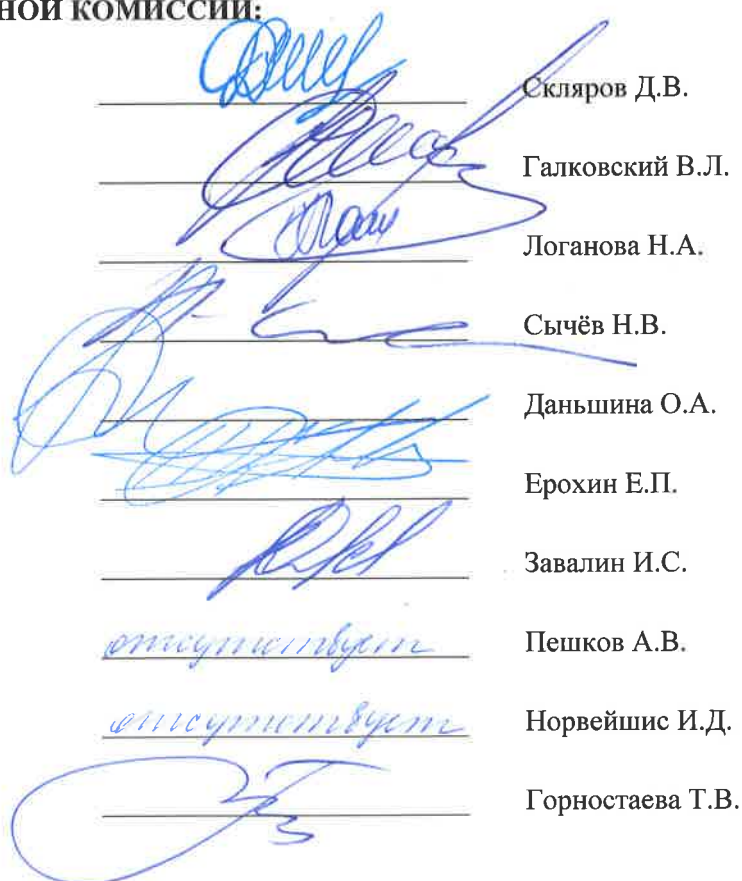 НОЙ КОМИССИИ:
Скляров Д.В.
Галковский В.Л.
Логанова Н.А.
Сычёв Н.В.
Даньшина О.А.
Ерохин Е.П.
Завалин И.С.
отсутствует Пешков А.В.
отсутствует Норвейшис И.Д.
Горностаева Т.В.